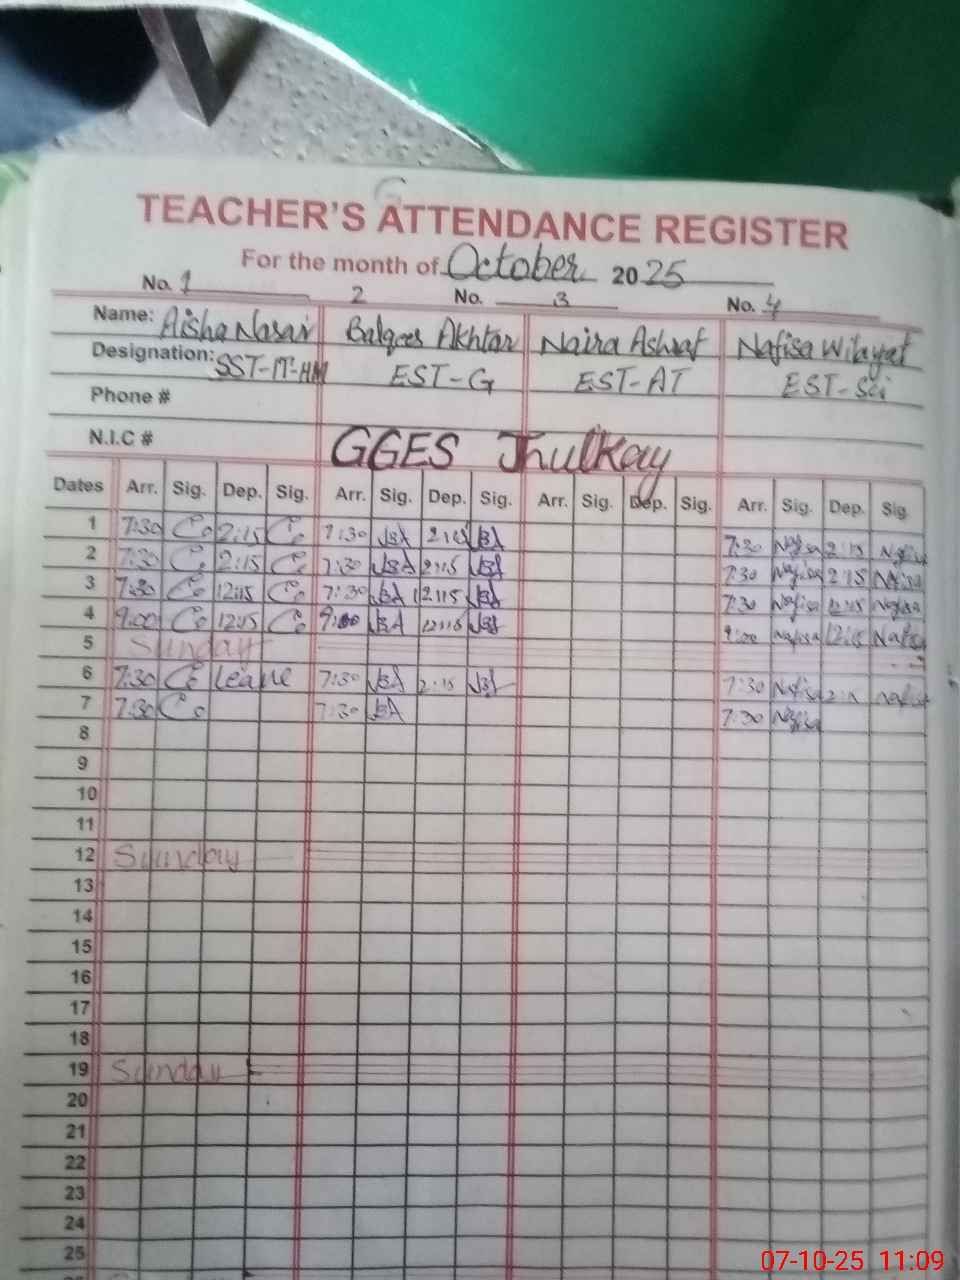 TEACHER'S ATTENDANCE REGISTER
For the month of October 2025
No. 1 2 No. 3 No. 4
Name: Aisha Nasar Balqees Akhtar Naira Ashraf Nafisa Wilayat
Designation: SST-IT-HM EST-G EST-AT EST-Sci
Phone #
N.I.C # GGES Jhulkay
Dates Arr. Sig. Dep. Sig. Arr. Sig. Dep. Sig. Arr. Sig. Dep. Sig. Arr. Sig. Dep. Sig
1 7:30 2:15 7:30 2:15 7:30 Nafisa 2:15 Nafisa
2 7:30 2:15 7:30 2:15 7:30 Nafisa 2:15 Nafisa
3 7:30 12:15 7:30 12:15 7:30 Nafisa 12:15 Nafisa
4 9:00 12:15 9:00 12:15 9:00 Nafisa 12:15 Nafisa
5 Sunday
6 7:30 Leave 7:30 2:15 7:30 Nafisa Nafisa
7 7:30 7:30 7:30 Nafisa
8
9
10
11
12 Sunday
13
14
15
16
17
18
19 Sunday
20
21
22
23
24
25
07-10-25 11:09